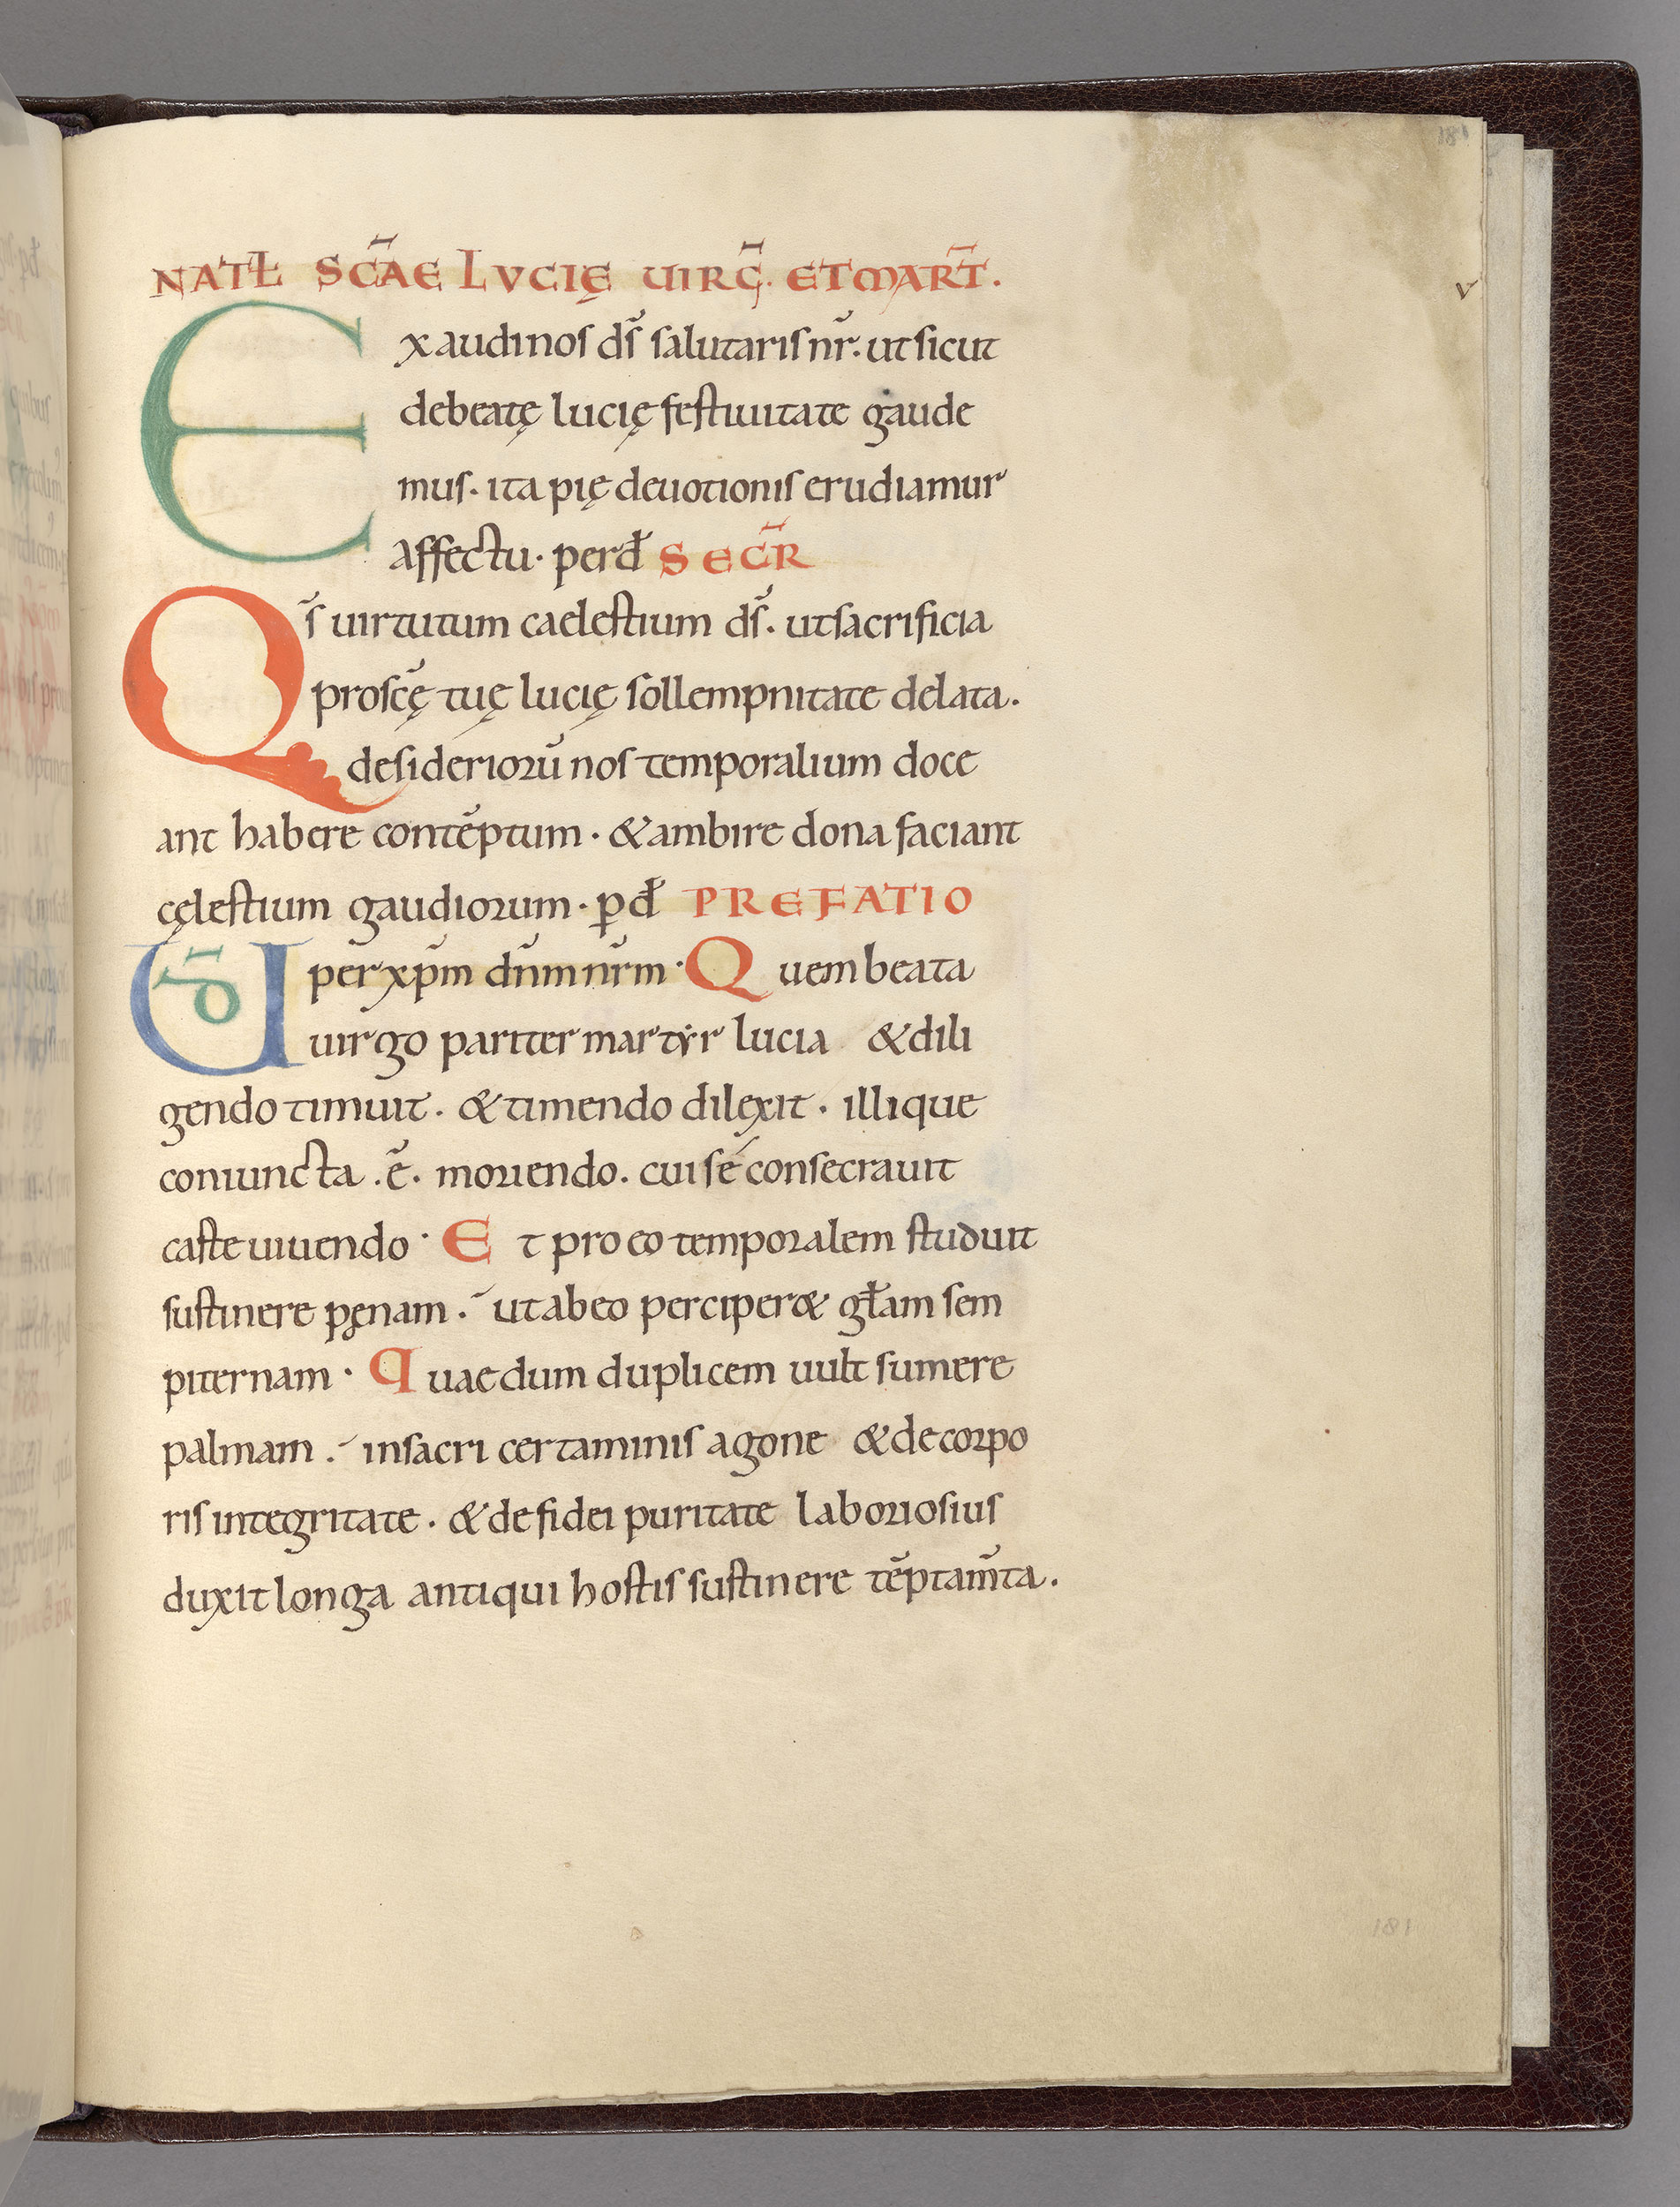 181
NATƚ SC̄AE LVCIĘ UIRḠ. ET MART̄.
v
Exaudi nos ds̄ salutaris nr̄. ut sicut
de beatę lucię festiuitate gaude
mus. ita pię deuotionis erudiamur
affectu. per dn̄ SECR̄
Qs̄ uirtutum caelestium ds̄. ut sacrificia
pro sc̄ę tuę lucię sollempnitate delata.
desideriorū nos temporalium doce
ant habere contēptum. & ambire dona faciant
cęlestium gaudiorum. ꝑ đ PREFATIO
UD̄ per xp̄m dn̄m nr̄m. Quem beata
uirgo pariter martyr lucia & dili
gendo timuit. & timendo dilexit. illique
coniuncta .ē. moriendo. cui sé consecrauit
caste uiuendo. Et pro eo temporalem studuit
sustinere pęnam. ut ab eo perciper& gƚam sem
piternam. Quae dum duplicem uult sumere
palmam. in sacri certaminis agone & de corpo
ris integritate. & de fidei puritate laboriosius
duxit longa antiqui hostis sustinere tēptam̄ta.
181